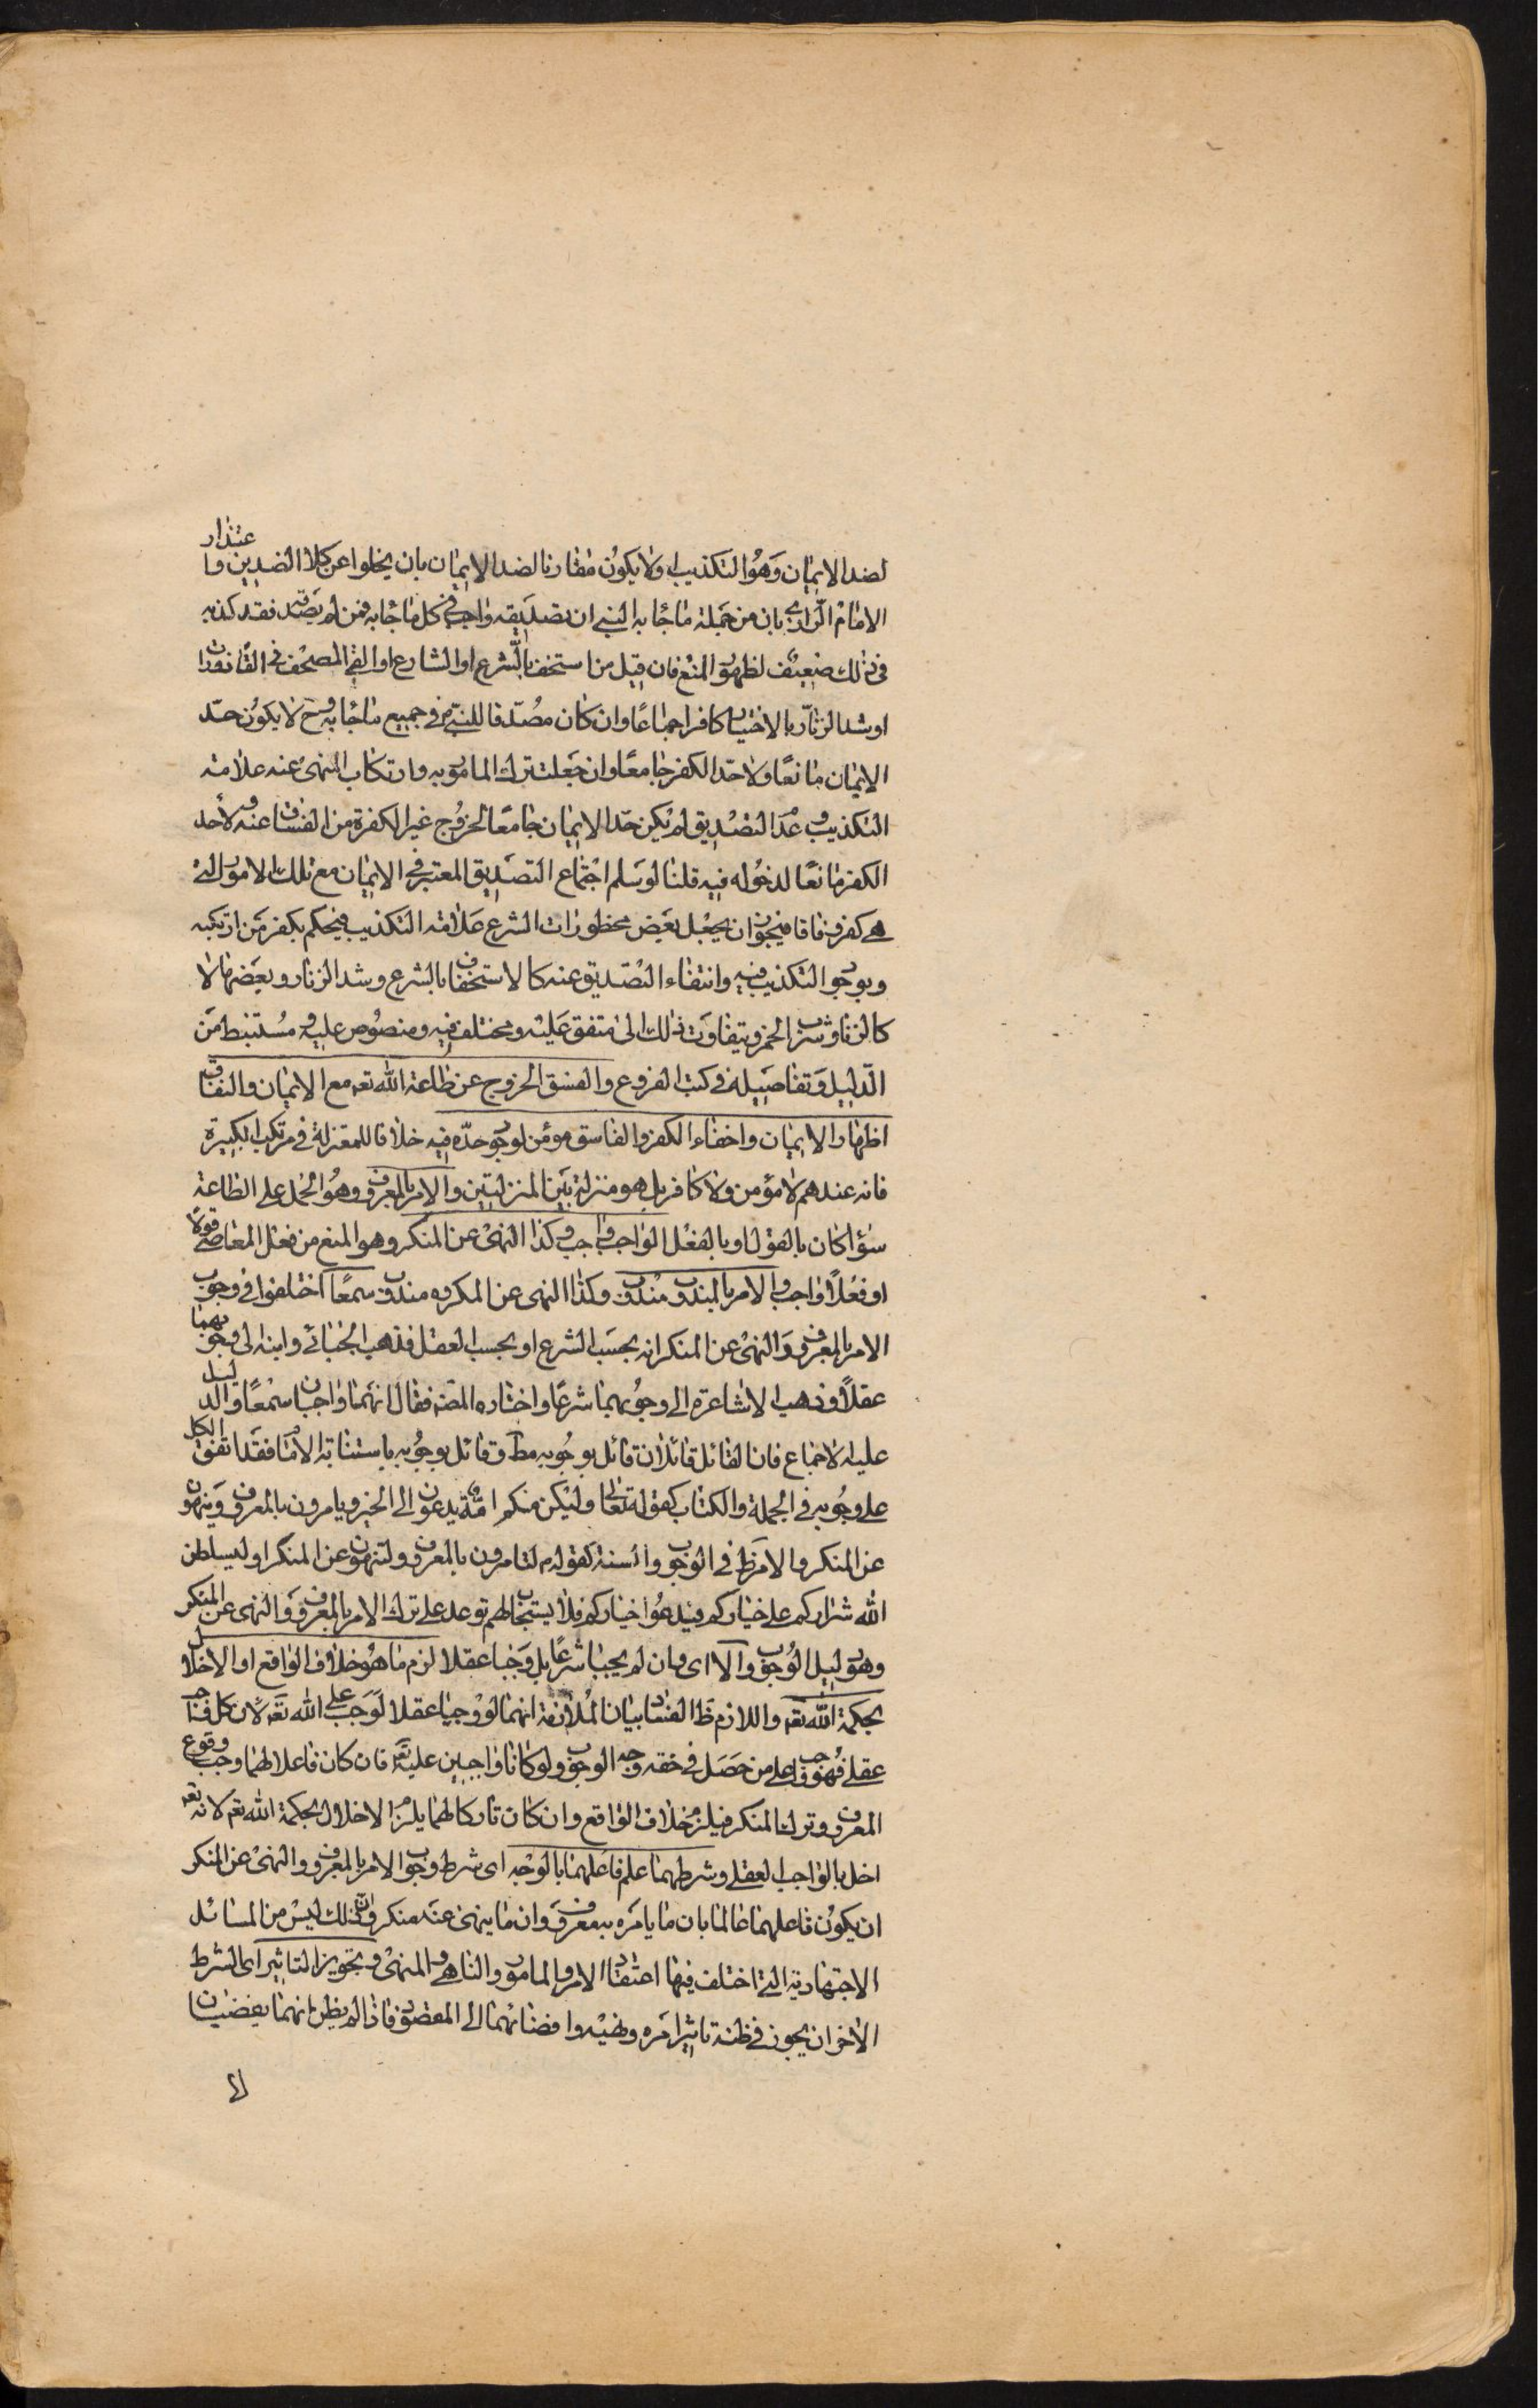 لضد الايمان وهو التكذيب اولا يكون مقارنا لضد الايمان بان يخلوا عن كلا الضدين واعتذار
الامام الرازي بان من جملة ما جاء به النبي ان تصديقه واجب في كل ما جاء به فمن لم يصدقه فقد كذبه
في ذلك ضعيف لظهور المنع فان قيل من استخف بالشرع او الشارع او القي المصحف في القاذورات
او شد الزنار بالاختيار كافر اجماعا وان كان مصدقا للنبي في جميع ما جاء به وح لا يكون حد
الايمان مانعا ولا حد الكفر جامعا وان جعلت ترك المامور به وارتكاب المنهي عنه علامة
التكذيب وعدم التصديق لم يكن حد الايمان جامعا لخروج غير الكفرة من الفساق عنه ولا حد
الكفر مانعا لدخوله فيه قلنا لو سلم اجتماع التصديق المعتبر في الايمان مع تلك الامور التي
هي كفر وفاقا فيجوز ان يجعل بعض محظورات الشرع علامة التكذيب فيحكم بكفر من ارتكبه
وبوجود التكذيب فيه وانتفاء التصديق عنه كالاستخفاف بالشرع وشد الزنار وبعضها لا
كالزنا وشرب الخمر ويتفاوت ذلك الى متفق عليه ومختلف فيه ومنصوص عليه ومستنبط من
الدليل وتفاصيله في كتب الفروع والفسق الخروج عن طاعة الله تعه مع الايمان والنفاق
اظهار الايمان واخفاء الكفر والفاسق مومن لوجود حده فيه خلافا للمعتزلة في مرتكب الكبيرة
فانه عندهم لا مؤمن ولا كافر بل هو منزلة بين المنزلتين والامر بالمعروف وهو الحمل على الطاعة
سواء كان بالقول او بالفعل الواجب واجب وكذا النهي عن المنكر وهو المنع من فعل المعاصي قولا
او فعلا واجب والامر بالمندوب مندوب وكذا النهي عن المكروه مندوب سمعا اختلفوا في وجوب
الامر بالمعروف والنهي عن المنكر انه بحسب الشرع او بحسب العقل فذهب الجبائي وابنه الى وجوبهما
عقلا وذهب الاشاعرة الى وجوبهما شرعا واختاره المصه فقال انهما واجبان سمعا والدليل
عليه الاجماع فان القائل قائلان قائل بوجوبه مط وقائل بوجوبه باستنابة الامام فقد اتفق الكل
على وجوبه في الجملة والكتاب كقوله تعالى ولتكن منكم امة يدعون الى الخير ويامرون بالمعروف وينهون
عن المنكر والامر ظ في الوجوب والسنة كقوله م لتامرون بالمعروف ولتنهون عن المنكر او ليسلطن
الله شراركم على خياركم فيدعوا خياركم فلا يستجاب لهم توعد على ترك الامر بالمعروف والنهي عن المنكر
وهو دليل الوجوب والا اي وان لم يجبا شرعا بل وجبا عقلا لزم ما هو خلاف الواقع او الاخلال
بحكمة الله تعه واللازم ظ الفساد بيان الملازمة انهما لو وجبا عقلا لوجب على الله تعه لان كل واجب
عقلي فهو واجب على من حصل في حقه وجه الوجوب ولو كانا واجبين عليه تعه فان كان فاعلا لهما وجب وقوع
المعروف وترك المنكر فيلزم خلاف الواقع وان كان تاركا لهما يلزم الاخلال بحكمة الله تعه لانه تعه
اخل بالواجب العقلي وشرطهما علم فاعلهما بالوجه اي شرط وجوب الامر بالمعروف والنهي عن المنكر
ان يكون فاعلهما عالما بان ما يامره معروف وان ما ينهى عنه منكر وان ذلك ليس من المسائل
الاجتهادية التي اختلف فيها اعتقاد الامر والمامور والناهي والمنهي وتجويز التاثير اي الشرط
الاخر ان يجوز في ظنه تاثير امره ونهيه وافضائهما الى المقصود فاذا لم يظن انهما يفضيان